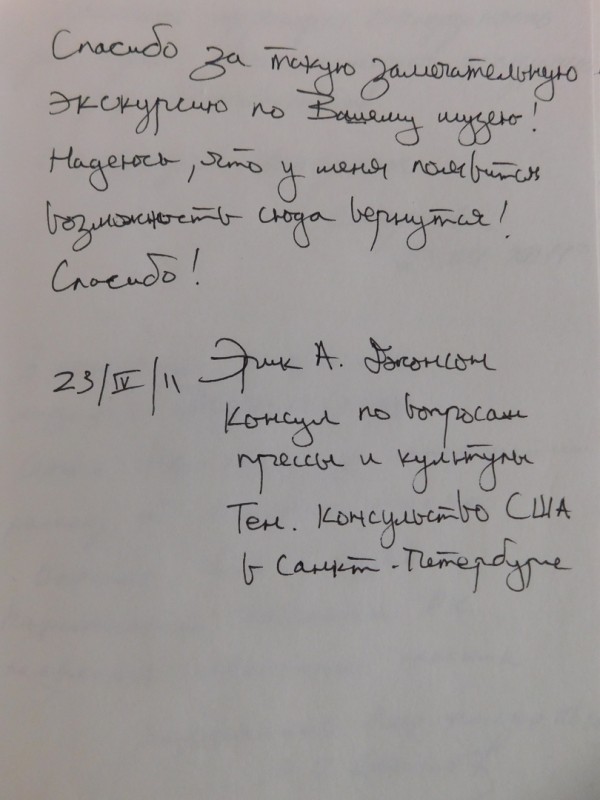 Спасибо за такую замечательную
экскурсию по Вашему музею!
Надеюсь, что у меня появится
возможность сюда вернутся!
Спасибо!
23/IV/11 Эрик А. Джонсон
Консул по вопросам
прессы и культуры
Ген. Консульство США
в Санкт-Петербурге